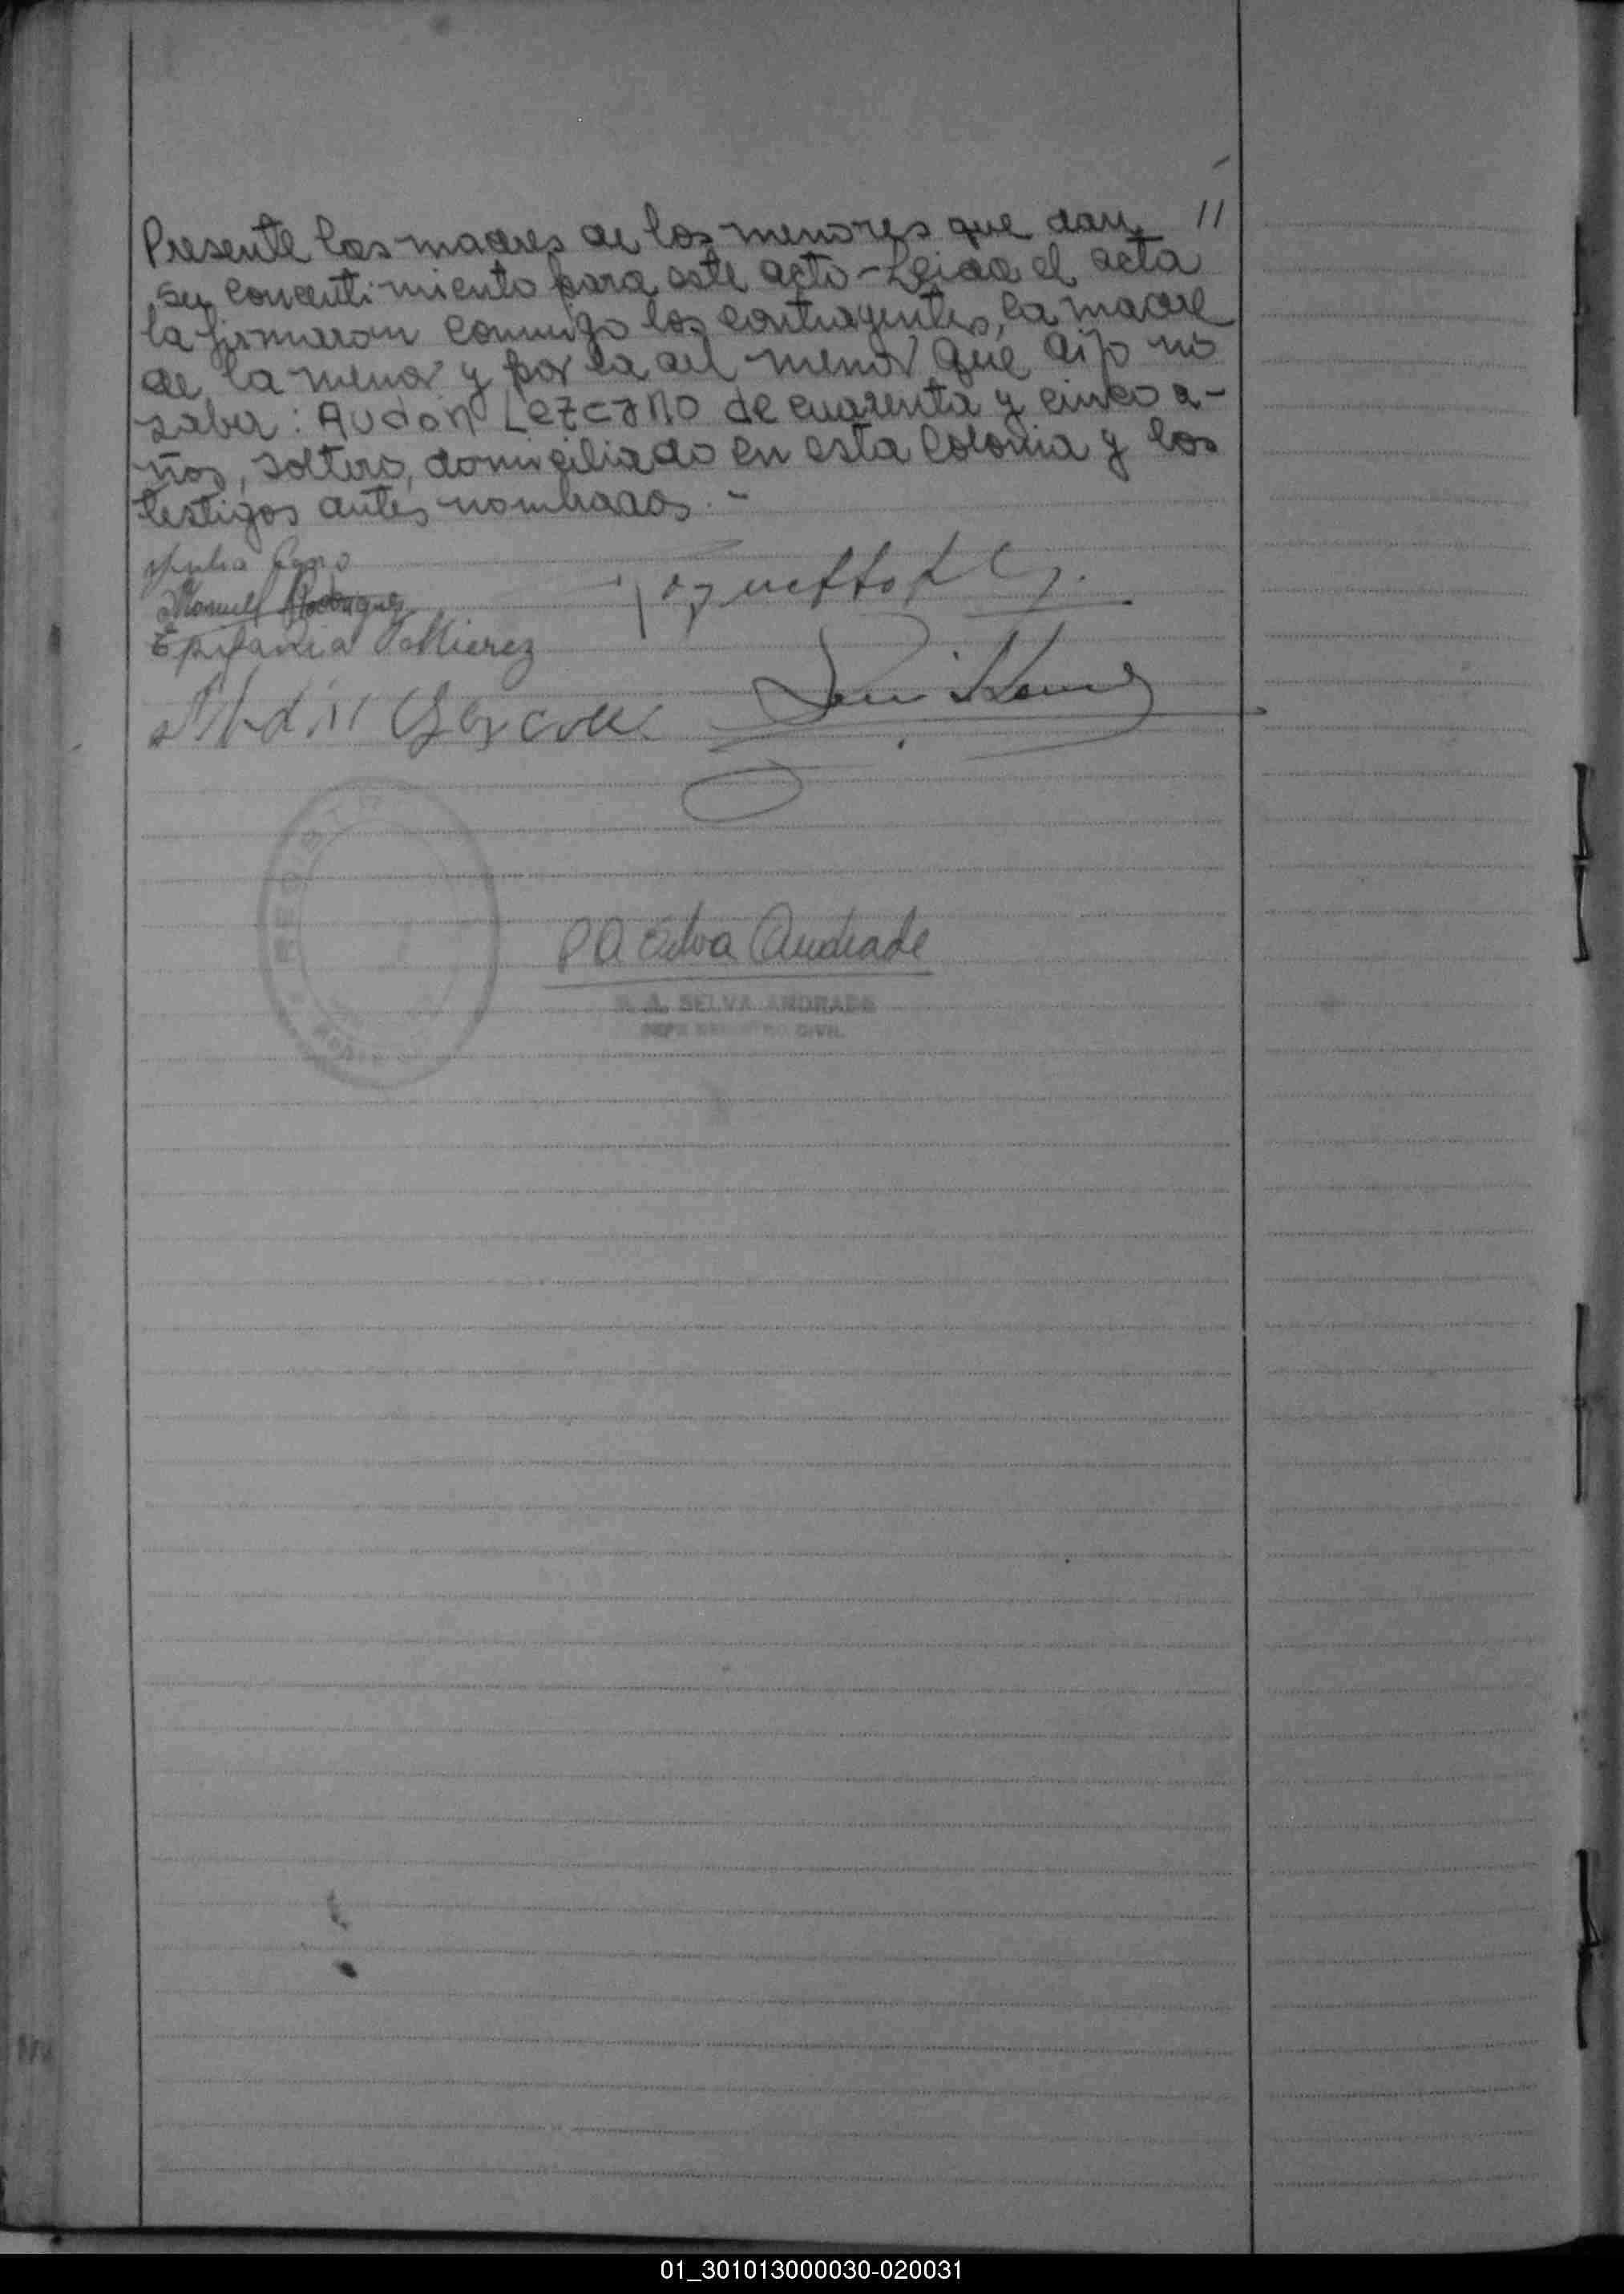 11
Presente las madres de los menores que dan
su concentimiento para este acto - Leida el acta
la firmaron conmigo los contrayentes, la madre
de la menor y por la del menor que dijo no
saber: AUDÓN LEZCANO de cuarenta y cinco a-
ños, soltero, domiciliado en esta Colonia y los
testigos antes nombrados. -
Manuel Rodriguez
Epifania
P A Selva Andrade
P. A. SELVA ANDRADE
JEFE REGISTRO CIVIL
01_301013000030-020031